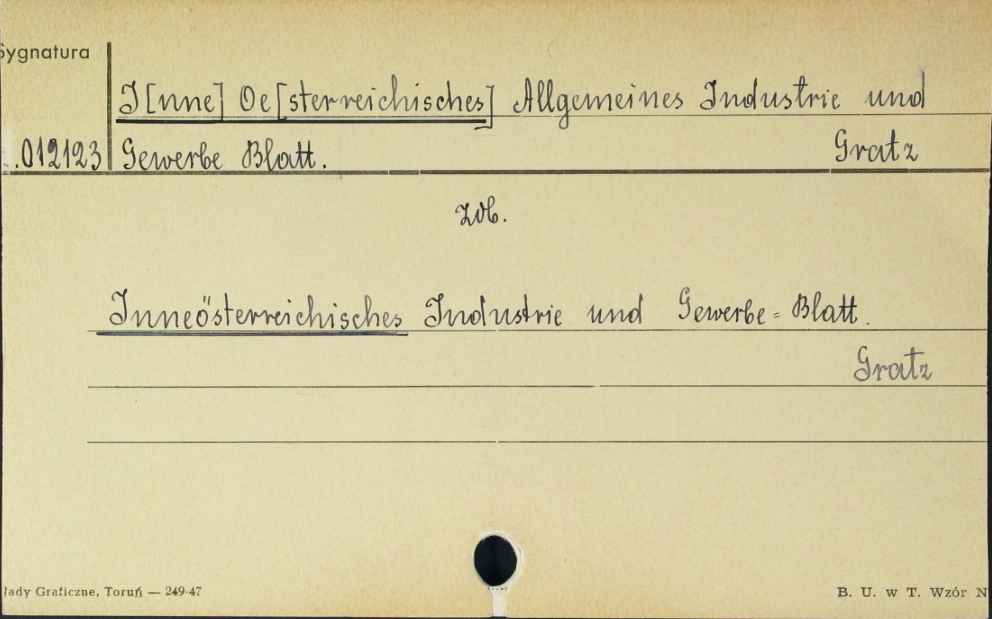 Sygnatura
I[nne] Oe[sterreichisches] Allgemeines Industrie und
.012123 Gewerbe Blatt. Gratz
zob.
Inneösterreichisches Industrie und Gewerbe=Blatt.
Gratz
łady Graficzne, Toruń — 249-47 B. U. w T. Wzór N